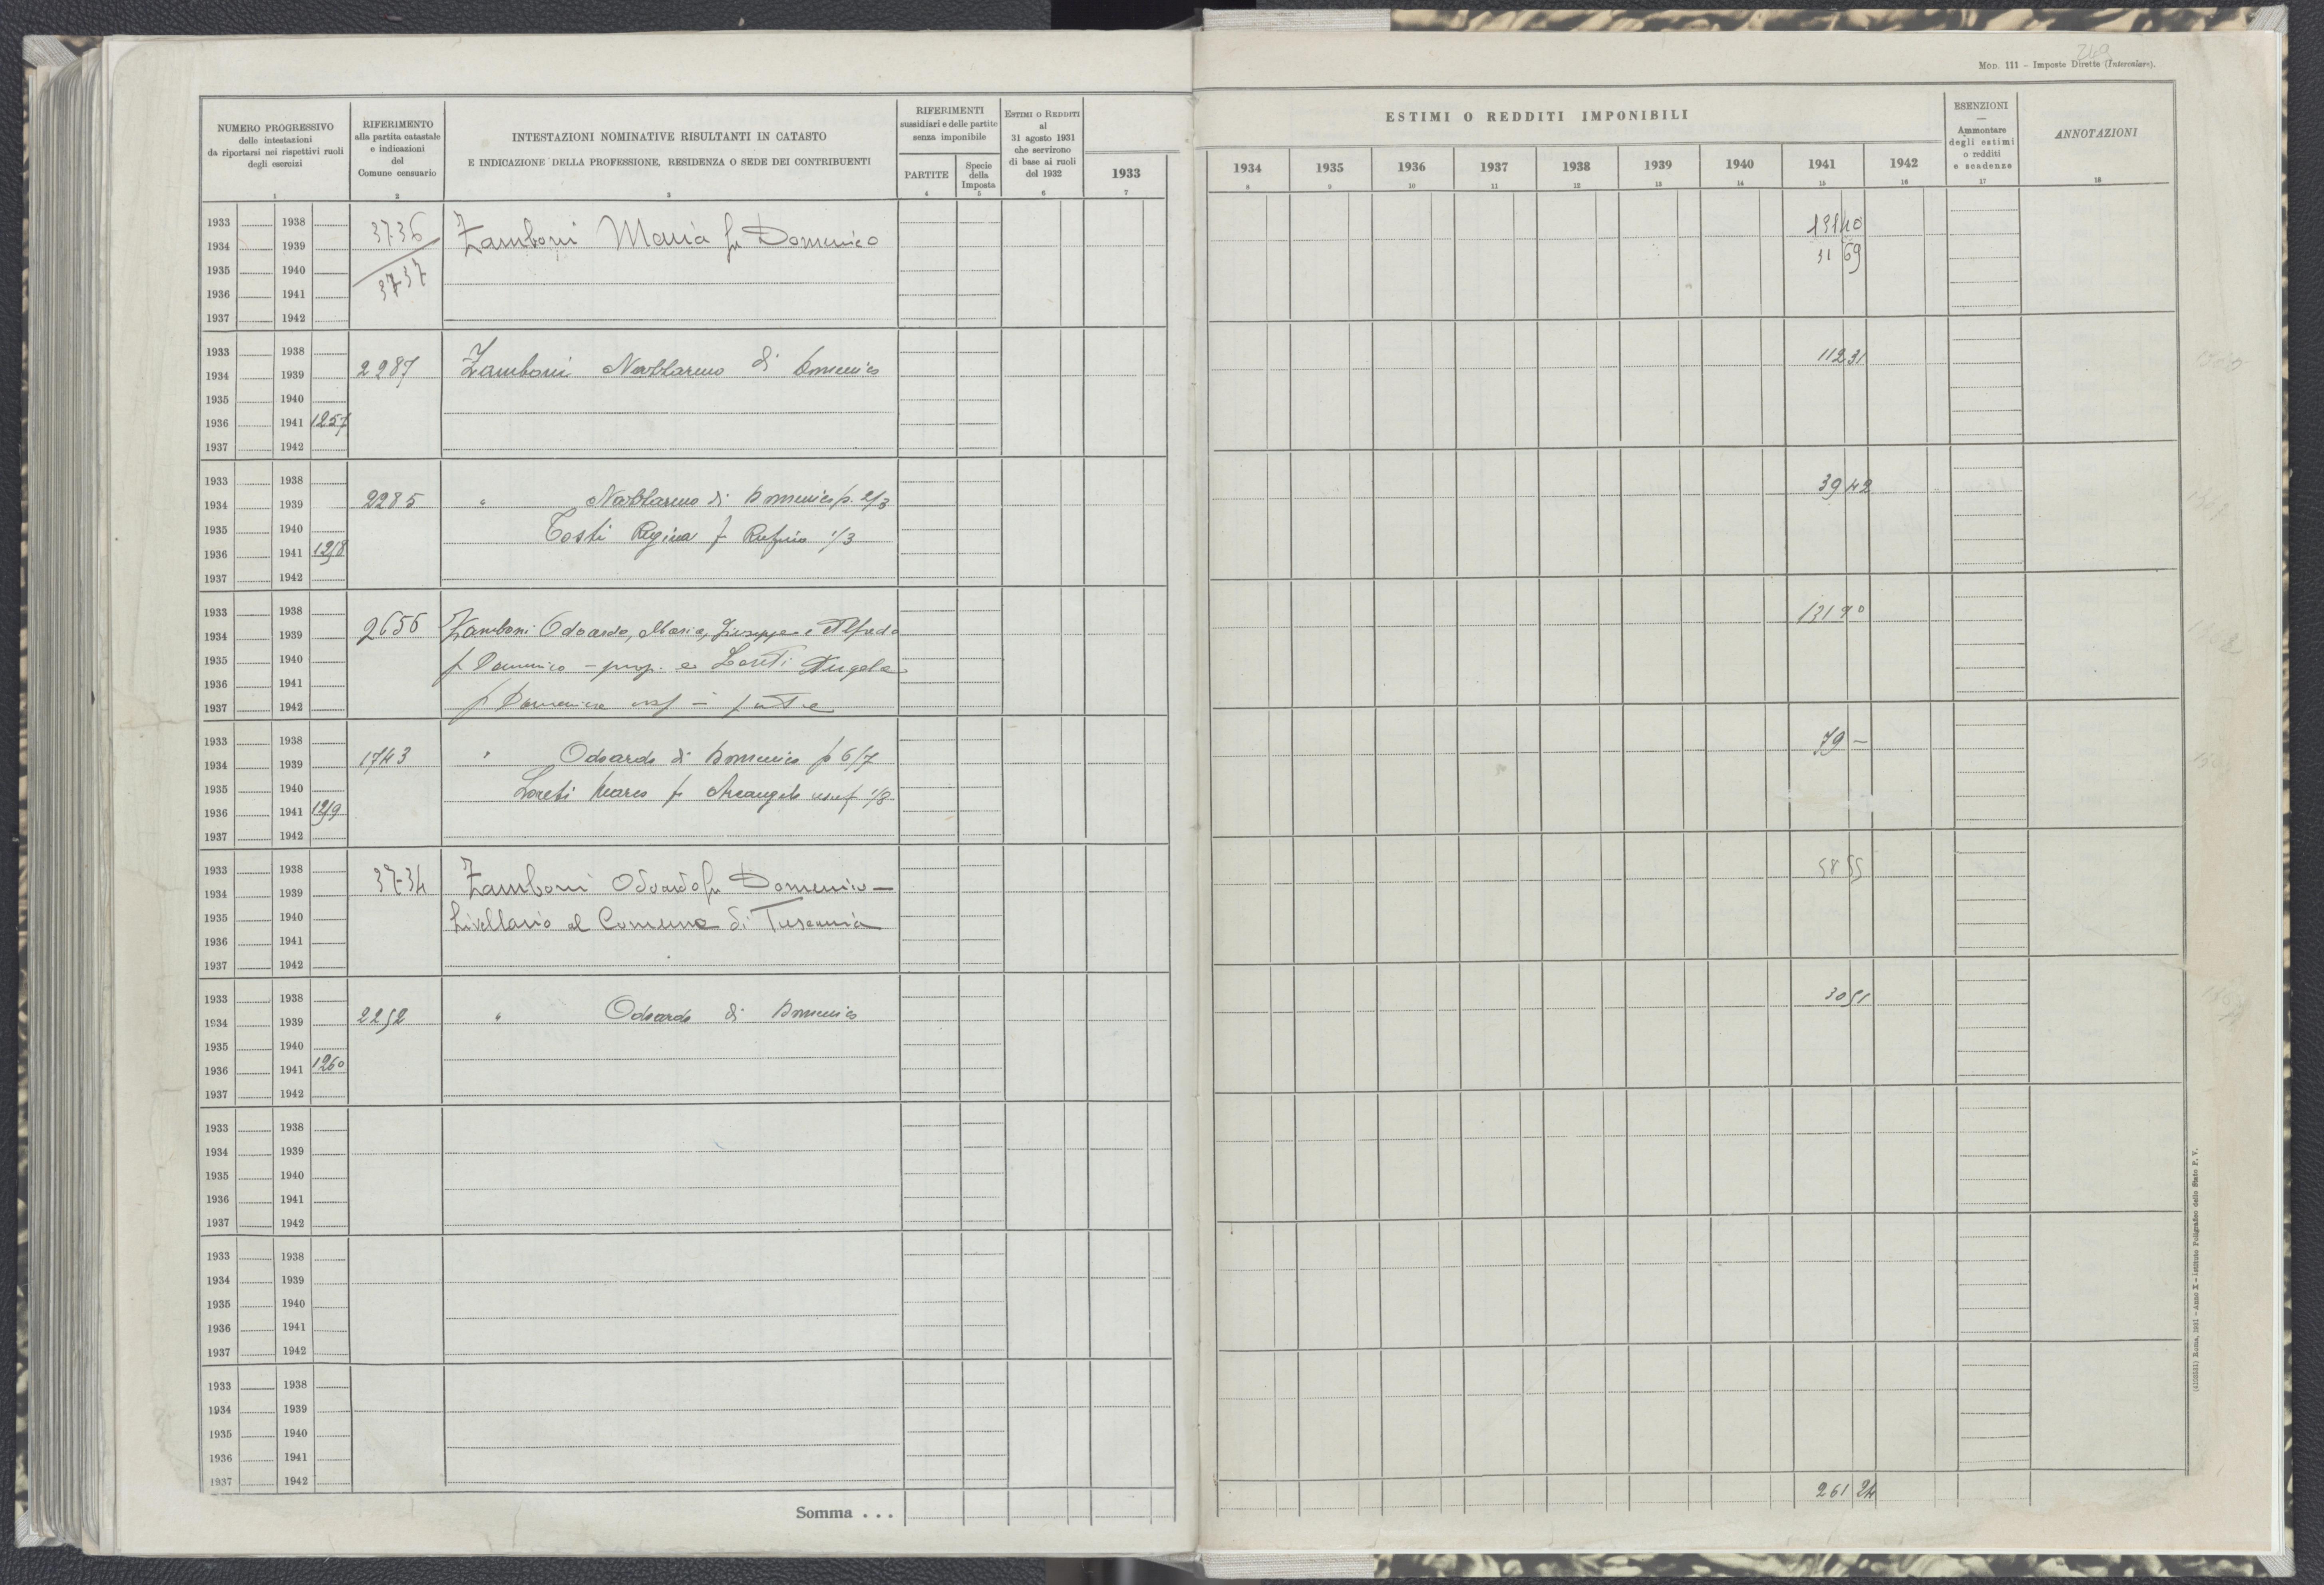 249
MOD. 111 – Imposte Dirette (Intercalare).
NUMERO PROGRESSIVO
delle intestazioni
da riportarsi nei rispettivi ruoli
degli esercizi
1
RIFERIMENTO
alla partita catastale
e indicazioni
del
Comune censuario
2
INTESTAZIONI NOMINATIVE RISULTANTI IN CATASTO
E INDICAZIONE DELLA PROFESSIONE, RESIDENZA O SEDE DEI CONTRIBUENTI
3
RIFERIMENTI
sussidiari e delle partite
senza imponibile
PARTITE
4
Specie
della
Imposta
5
ESTIMI O REDDITI
al
31 agosto 1931
che servirono
di base ai ruoli
del 1932
6
ESTIMI O REDDITI IMPONIBILI
1933 1934 1935 1936 1937 1938 1939 1940 1941 1942
7 8 9 10 11 12 13 14 15 16
ESENZIONI
—
Ammontare
degli estimi
o redditi
e scadenze
17
ANNOTAZIONI
18
1933 1938
1934 1939
1935 1940
1936 1941
1937 1942
3736
3737
Zamboni Maria fu Domenico
131 40
31 69
1933 1938
1934 1939
1935 1940
1936 1941 1257
1937 1942
2287 Zamboni Nablareno di Domenico 112 31
1933 1938
1934 1939
1935 1940
1936 1941 1258
1937 1942
2285 " Nablareno di Domenico p. 2/3 39 42
Tosti Regina f Rufino 1/3
1933 1938
1934 1939
1935 1940
1936 1941
1937 1942
2656 Zamboni Odoardo, Maria, Giuseppe e Alfredo 131 90
f Domenico – prop. e Loreti Angela
f Domenico usf –
1933 1938
1934 1939
1935 1940
1936 1941 1259
1937 1942
1743 " Odoardo di Domenico p 6/7 79 –
Loreti Marco fu Arcangelo usuf 1/8
1933 1938
1934 1939
1935 1940
1936 1941
1937 1942
3734 Zamboni Odoardo fu Domenico – 58 55
Livellario al Comune di Tuscania
1933 1938
1934 1939
1935 1940
1936 1941 1260
1937 1942
2252 " Odoardo di Domenico 30 51
1933 1938
1934 1939
1935 1940
1936 1941
1937 1942
1933 1938
1934 1939
1935 1940
1936 1941
1937 1942
1933 1938
1934 1939
1935 1940
1936 1941
1937 1942
Somma . . . 261 24
Roma, 1931 – Anno X – Istituto Poligrafico dello Stato P. V.